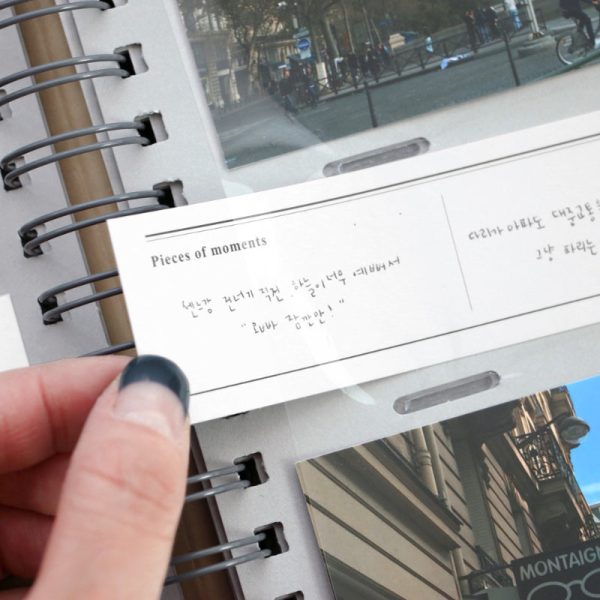 Pieces of moments
센느강 건너기 직전 하늘이 너무 예뻐서
"오빠 잠깐만!"
다리가 아파도 대중교통
그냥 파리는
MONTAIGN